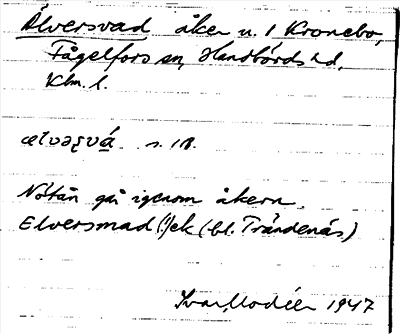 Älversvad åker u. 1 Kronebo,
Fågelfors sn, Handbörds hd,
Klm. l.
ælvəʂvá s. 1N.
Nötån går igenom åkern.
Elversmad (!) ek (bl. Trändenäs)
Ivar Modéer 1947